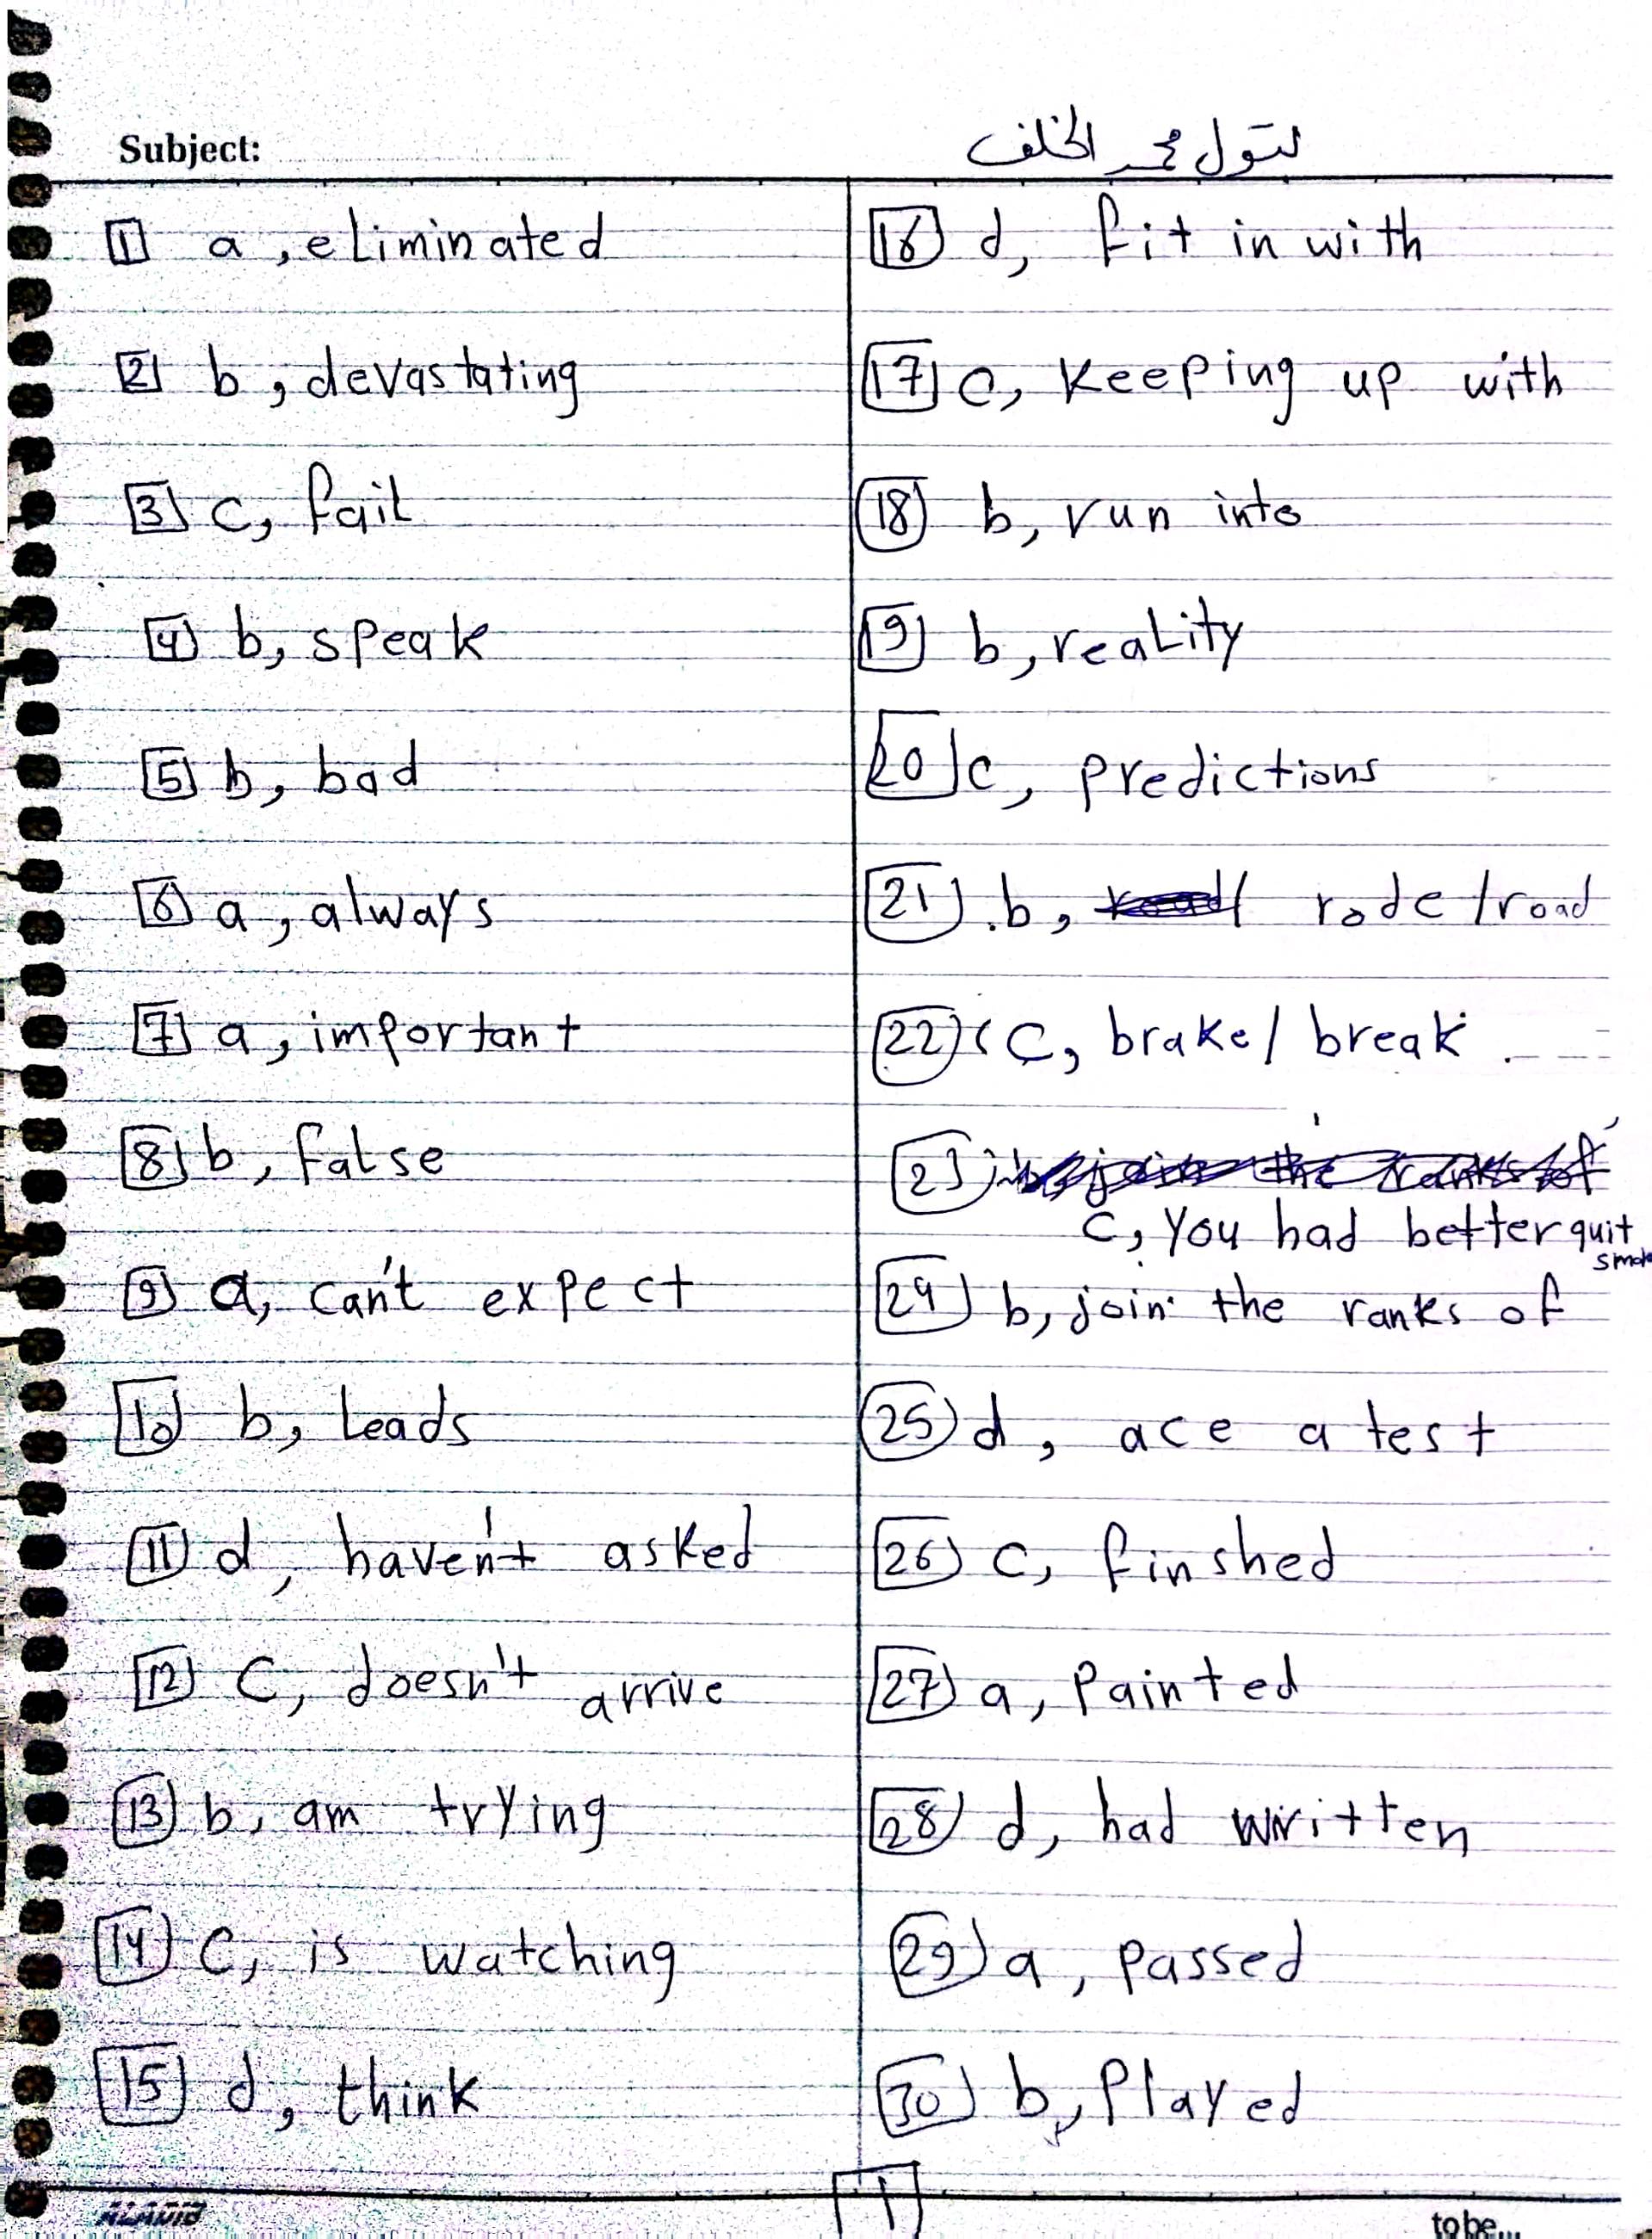 Subject:
بتول محمد الخلف
1 a, eliminated
2 b, devastating
3 c, fail
4 b, speak
5 b, bad
6 a, always
7 a, important
8 b, false
9 a, can't expect
10 b, Leads
11 d, haven't asked
12 C, doesn't arrive
13 b, am trying
14 C, is watching
15 d, think
16 d, fit in with
17 c, Keeping up with
18 b, run into
19 b, reality
20 c, predictions
21 b, rode/road
22 C, brake/ break
23
C, You had better quit
24 b, join the ranks of
25 d, ace a test
26 C, finshed
27 a, Painted
28 d, had written
29 a, passed
30 b, Played
1
ALAMIR
to be...